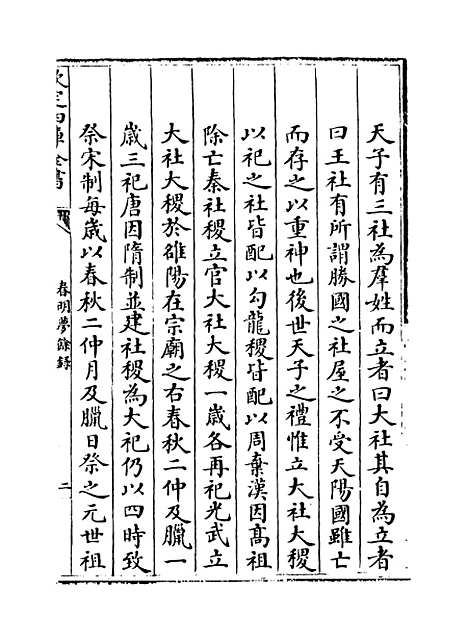 天子有三社為羣姓而立者曰大社其自為立者
曰王社有所謂勝國之社屋之不受天陽國雖亡
而存之以重神也後世天子之禮惟立大社大稷
以祀之社皆配以勾龍稷皆配以周棄漢因高祖
除亡秦社稷立官大社大稷一歲各再祀光武立
大社大稷於雒陽在宗廟之右春秋二仲及臘一
歲三祀唐因隋制並建社稷為大祀仍以四時致
祭宋制每歲以春秋二仲月及臘日祭之元世祖
欽定四庫全書
春明夢餘錄
二